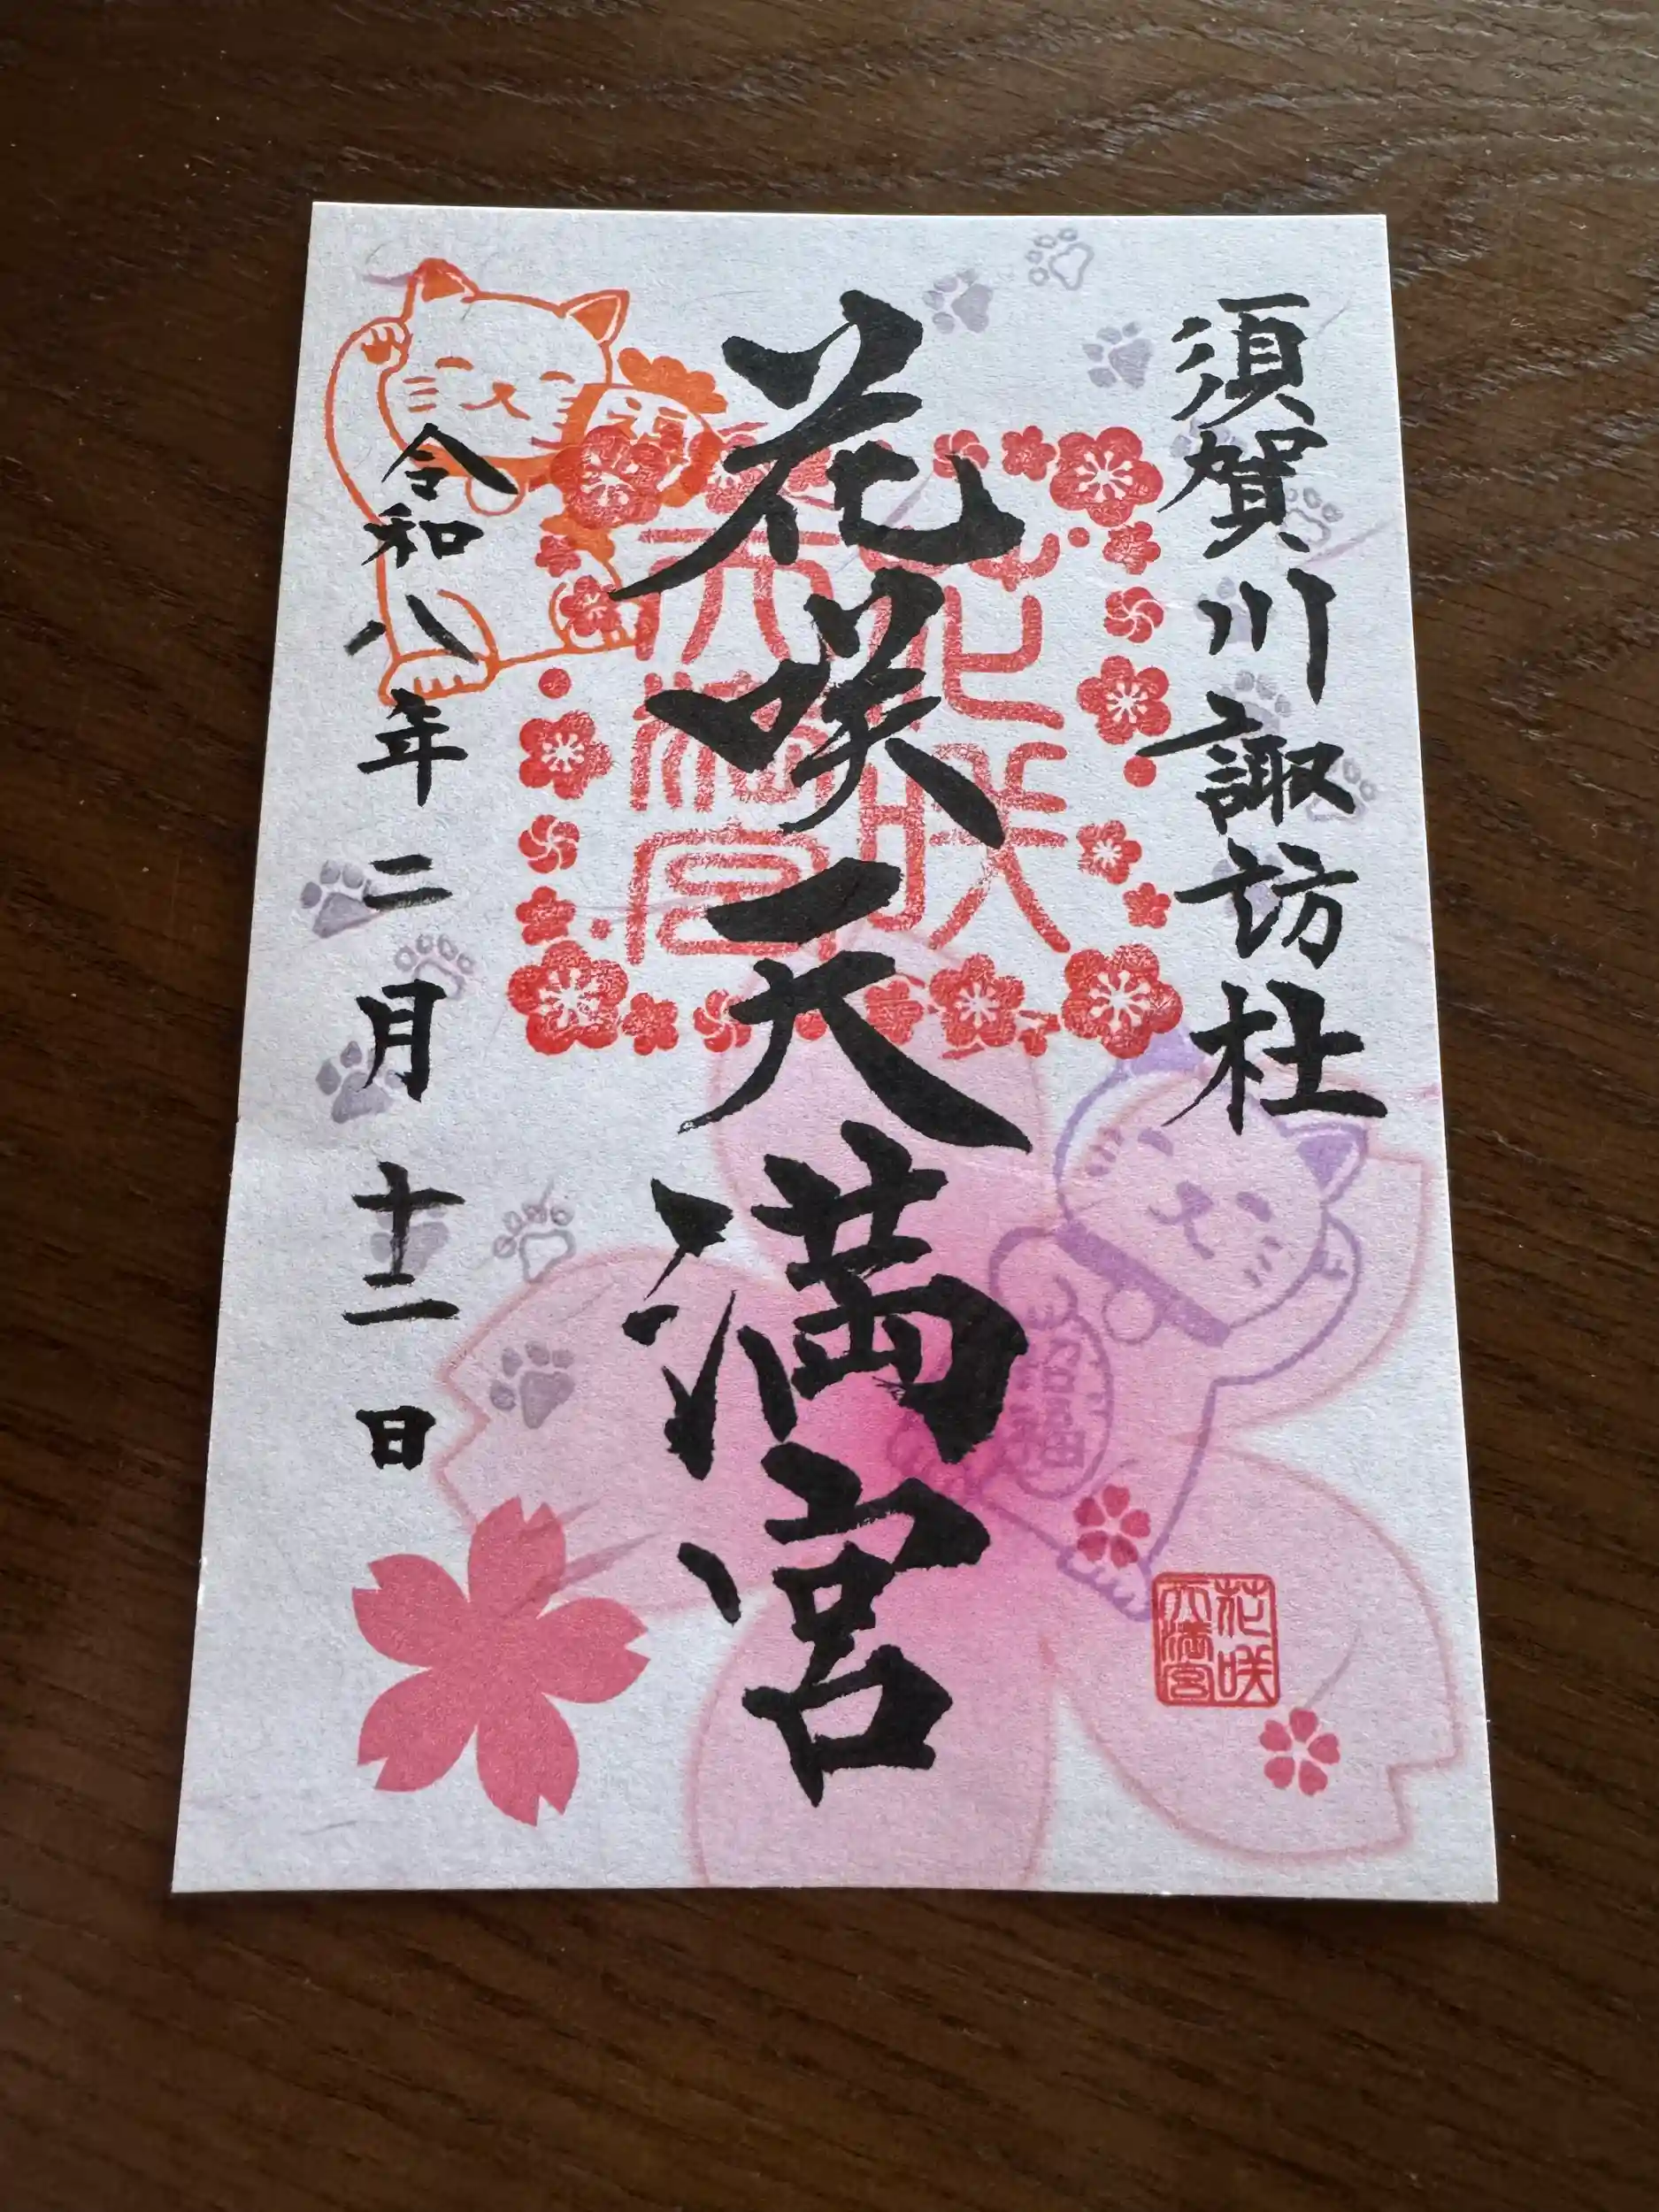 須賀川諏訪社
花咲天満宮
令和八年二月十二日
花咲
天満宮
花咲
天満宮
招福